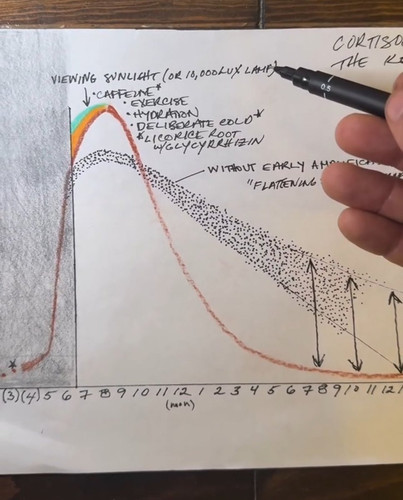 CORTISO
THE R
VIEWING SUNLIGHT (OR 10,000 LUX LAMP)
• CAFFEINE*
• EXERCISE
• HYDRATION
• DELIBERATE COLD*
* LICORICE ROOT
W/GLYCYRRHIZIN
WITHOUT EARLY
"FLATTENING
0.5
(3)(4) 5 6 7 8 9 10 11 12 1 2 3 4 5 6 7 8 9 10 11 12
(noon)